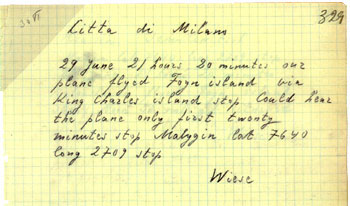 329
30 VI
Citta di Milano
29 june 21 hours 20 minutes our
plane flyed Foyn island via
King Charles island stop Could hear
the plane only first twenty
minutes stop Malygin lat 7640
long 2709 stop
Wiese